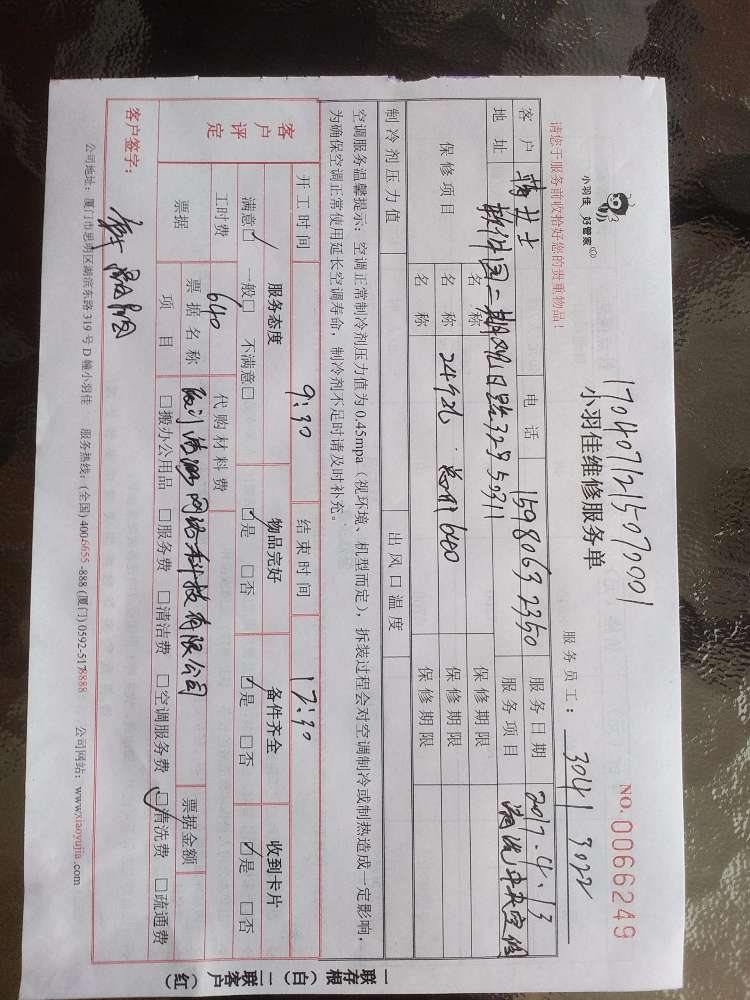 1704071215070001
小羽佳 好管家
小羽佳维修服务单
NO.0066249
请您于服务前收拾好您的贵重物品!
服务员工: 3041 3022
客户 蒋女士 电话 15980632350 服务日期 2017.4.13
地址 软件园二期观日路32号 服务项目 清洗中央空调
保修项目 名称 保修期限
名称 24台 总价640 保修期限
名称 保修期限
制冷剂压力值 出风口温度
空调服务温馨提示:空调正常制冷剂压力值为0.45mpa(视环境、机型而定),拆装过程会对空调制冷或制热造成一定影响,
为确保空调正常使用延长空调寿命,制冷剂不足时请及时补充。
开工时间 9:30 结束时间 17:30
客户评定 服务态度 物品完好 备件齐全 收到卡片
满意□ 一般□ 不满意□ □是 □否 □是 □否 □是 □否
工时费 640 代购材料费
票据 票据名称 网络科技有限公司 票据金额
项目 □搬办公用品 □服务费 □清洁费 □空调服务费 □清洗费 □疏通费
客户签字:
公司地址:厦门市思明区湖滨东路319号D幢小羽佳 服务热线:(全国)4006655-888 (厦门)0592-5178888 公司网站:www.xiaoyujia.com
一联存根(白) 二联客户(红)